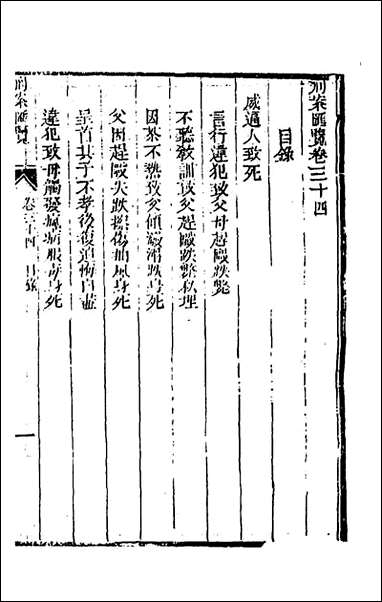 刑案匯覽卷三十四
目錄
威逼人致死
言行違犯致父母趕毆跌斃
不聽教訓致父趕毆跌斃私埋
因茶不熱致父傾潑滑跌身死
父因趕毆失跌擦傷抽風身死
呈首其子不孝後復追悔自盡
違犯致母觸發瘋病服毒身死
刑案匯覽
卷三十四 目錄
一